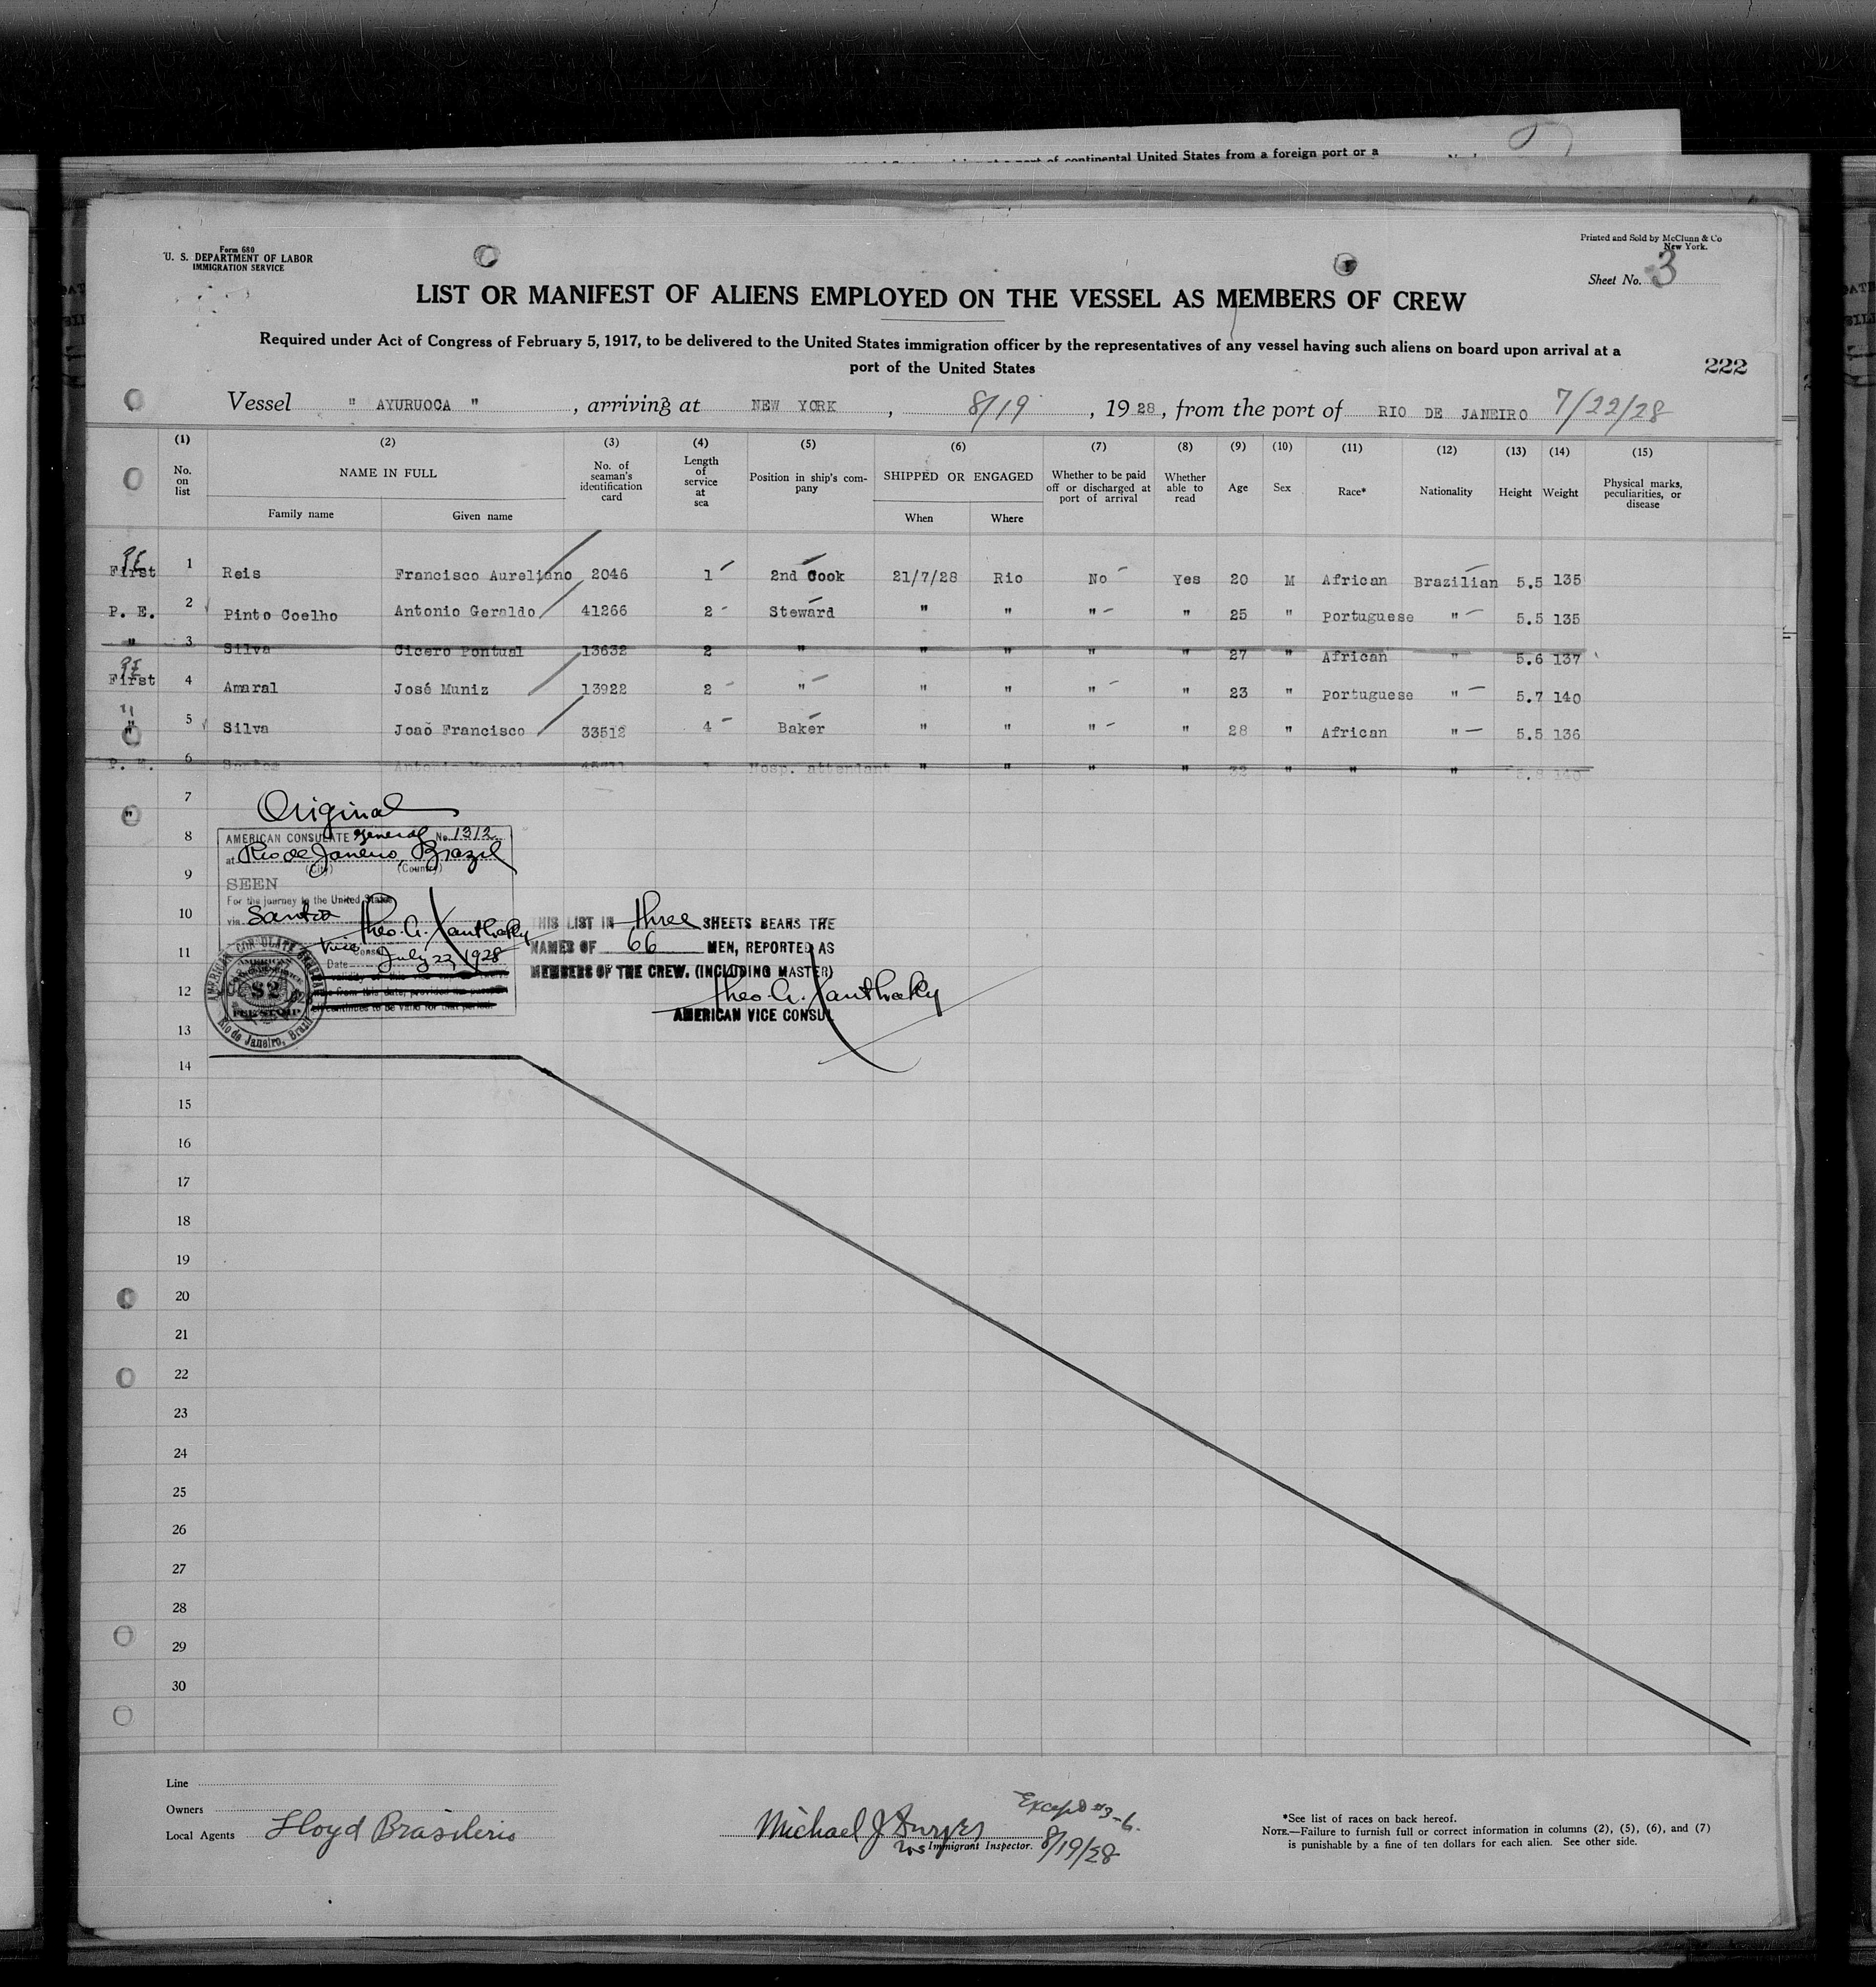 of continental United States from a foreign port or a
Form 680
U. S. DEPARTMENT OF LABOR
IMMIGRATION SERVICE
Printed and Sold by McClunn & Co
New York.
Sheet No. 3
LIST OR MANIFEST OF ALIENS EMPLOYED ON THE VESSEL AS MEMBERS OF CREW
Required under Act of Congress of February 5, 1917, to be delivered to the United States immigration officer by the representatives of any vessel having such aliens on board upon arrival at a
port of the United States
222
Vessel " AYURUOCA " , arriving at NEW YORK , 8/19 , 1928 , from the port of RIO DE JANEIRO 7/22/28
(1) (2) (3) (4) (5) (6) (7) (8) (9) (10) (11) (12) (13) (14) (15)
No. on list NAME IN FULL Family name Given name No. of seaman's identification card Length of service at sea Position in ship's company SHIPPED OR ENGAGED When Where Whether to be paid off or discharged at port of arrival Whether able to read Age Sex Race* Nationality Height Weight Physical marks, peculiarities, or disease
First 1 Reis Francisco Aureliano 2046 1 2nd Cook 21/7/28 Rio No Yes 20 M African Brazilian 5.5 135
P. E. 2 Pinto Coelho Antonio Geraldo 41266 2 Steward " " " " 25 " Portuguese " 5.5 135
" 3 Silva Cicero Pontual 13632 2 " " " " " 27 " African " 5.6 137
First 4 Amaral José Muniz 13922 2 " " " " " 23 " Portuguese " 5.7 140
" 5 Silva Joaõ Francisco 33512 4 Baker " " " " 28 " African " 5.5 136
P. E. 6 Santos Antonio Manoel 1 Hosp. attendant " " " " 32 " " " 140
7
"
8
9
10
11
12
13
14
15
16
17
18
19
20
21
22
23
24
25
26
27
28
29
30
Original
AMERICAN CONSULATE General No. 1312
at Rio de Janeiro, Brazil
(City) (Country)
SEEN
For the journey to the United States
via Santos
Theo. A. Xanthaky
Vice Consul
Date July 22, 1928
AMERICAN CONSULATE GENERAL
$2
FEE STAMP
Rio de Janeiro, Brazil
THIS LIST IN three SHEETS BEARS THE
NAMES OF 66 MEN, REPORTED AS
MEMBERS OF THE CREW. (INCLUDING MASTER)
Theo. A. Xanthaky
AMERICAN VICE CONSUL
Line
Owners
Local Agents Lloyd Brasileiro
Except #3-6.
Michael J
Immigrant Inspector. 8/19/28
*See list of races on back hereof.
NOTE.—Failure to furnish full or correct information in columns (2), (5), (6), and (7)
is punishable by a fine of ten dollars for each alien. See other side.